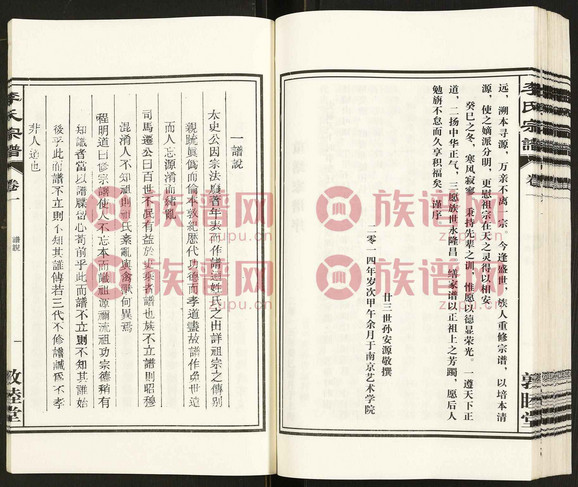 远，溯本寻源，万亲不离一宗，今逢盛世，族人重修宗谱，以培本清
源，使之嫡派分明，更慰祖宗在天之灵得以相安。
癸巳之冬，寒风寂寥，秉持先辈之训，惟愿以德显荣光。一遵天下正
道，二扬中华正气，三愿族世永隆昌，绪家谱以正祖上之芳躅，愿后人
勉旃不怠而久享积福矣。谨序
廿三世孙安源敬撰
二零一四年岁次甲午余月于南京艺术学院
李氏宗谱
卷
敦睦堂
一譜說
太史公因宗法廢
而作譜
姓氏之由詳祖宗之傳別
親疏
倫本敦
歷代功德而孝道盡故譜作
世遠
而人忘源淆而緒亂
司馬遷公曰百世不
有益於
譜也族不立譜則昭穆
混淆人不知祖則祖氏紊亂與禽獸何異焉
程明道曰修宗譜使人不忘本而識祖源
流祖功宗德稍有
知識者當以譜牒
心苟前乎此而譜不立則不知其誰始
後乎此而譜不立則不知其誰傳若三代不修譜誠為不孝
非人道也
李氏宗譜
卷一
譜說
一
敦睦堂
族谱网
zupu.cn
族谱网
zupu.cn
族谱网
zupu.cn
族谱网
zupu.cn